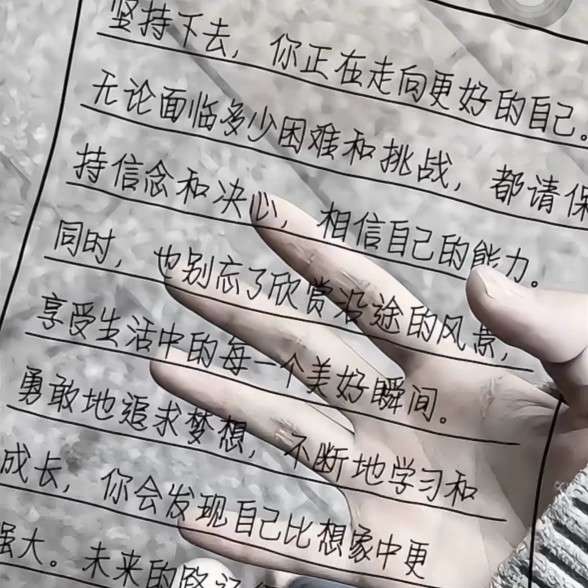 坚持下去，你正在走向更好的自己。
无论面临多少困难和挑战，都请保
持信念和决心，相信自己的能力。
同时，也别忘了欣赏沿途的风景，
享受生活中的每一个美好瞬间。
勇敢地追求梦想，不断地学习和
成长，你会发现自己比想象中更
强大。未来的路